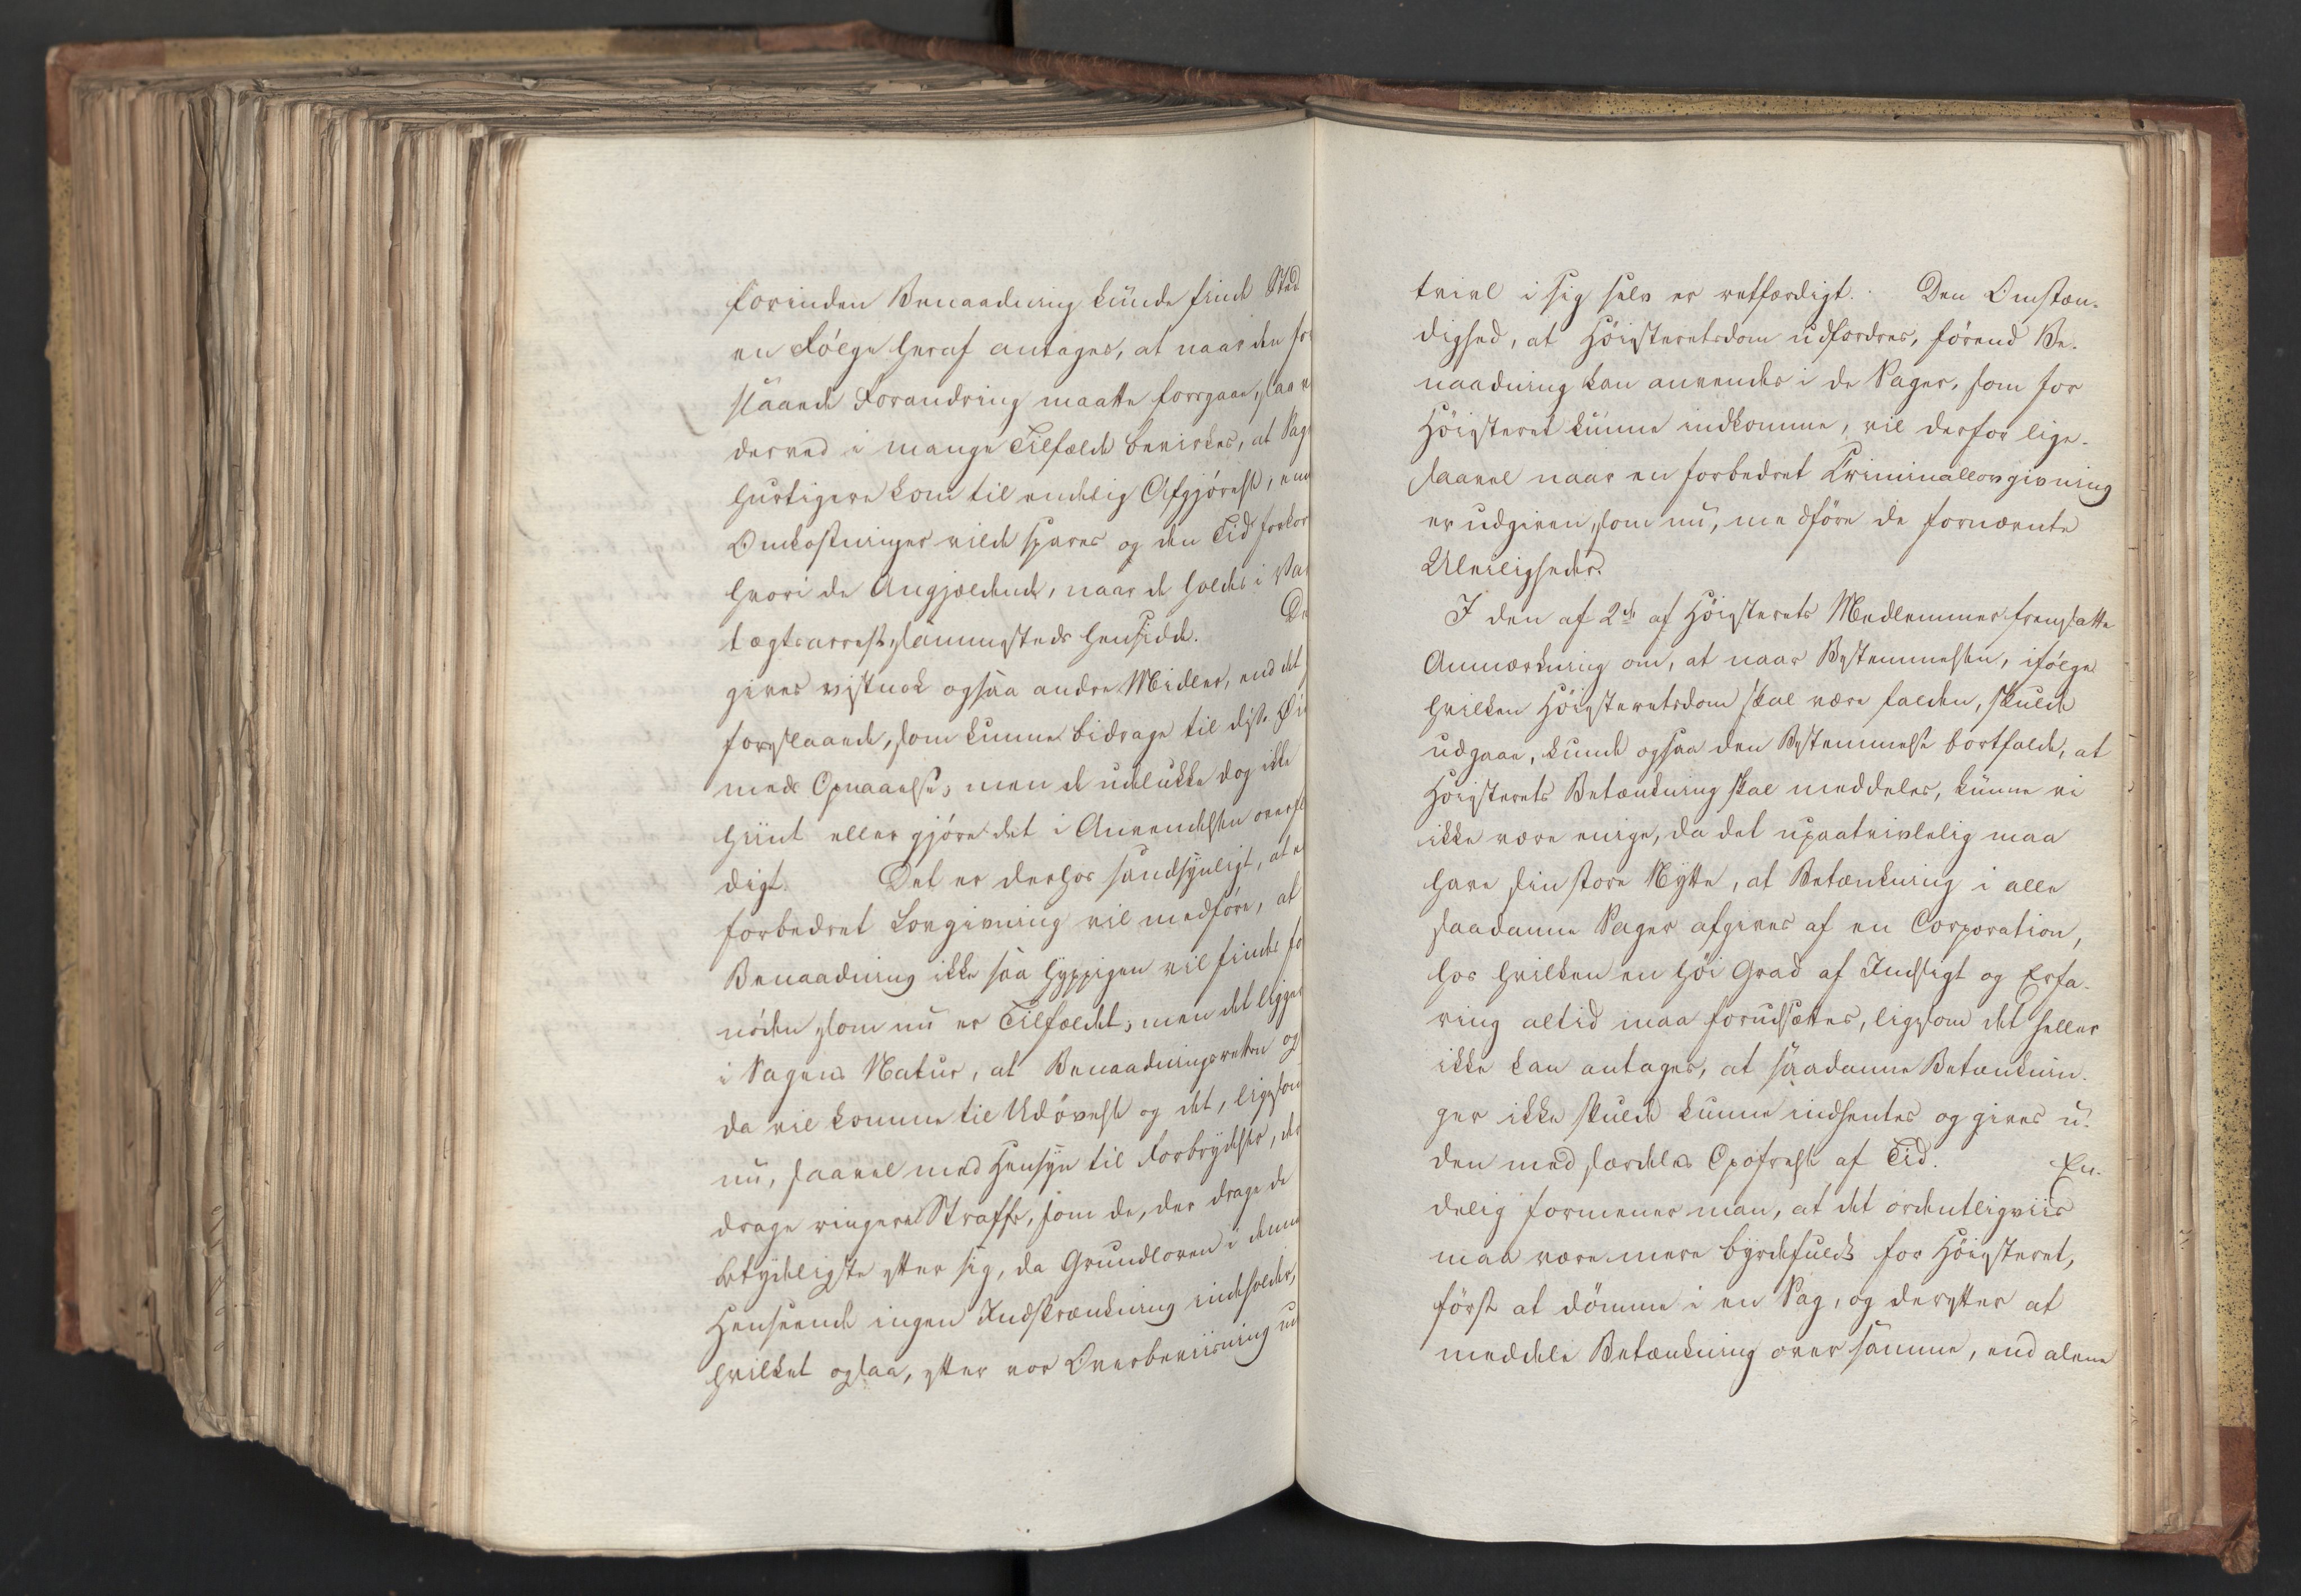 forinden Benaadning kunde finde Sted
en Følge heraf antages, at naar den fo
slaaede Forandring maatte foregaae, saa v
derved i mange Tilfælde bevirkes, at Sag
hurtigere kom til endelig Afgjørelse, en
Omkostninger vilde spares og den Tid forkor
hvori de Angjældende, naar de holdes i Va
tægtsarrest, sammesteds hensidde. De
gives vistnok ogsaa andre Midler, end det
foreslaaede, som kunne bidrage til disse Øi
meds Opnaaelse, men de udelukke dog ikke
hiint eller gjøre det i Anvendelsen overfl
digt. Det er derhos sandsynligt, at e
forbedret Lovgivning vil medføre, at
Benaadning ikke saa hyppigen vil findes fo
nøden, som nu er Tilfældet; men det ligger
i Sagens Natur, at Benaadningsretten og
da vil komme til Udøvelse og det, ligesom
nu, saavel med Hensyn til Forbrydelser, der
drage ringere Straffe, som de, der drage de
betydeligste efter sig, da Grundloven i denne
Henseende ingen Indskrænkning indeholder,
hvilket ogsaa, efter vor Overbeviisning u
tvivl i sig selv er retfærdigt. Den Omstæn-
dighed, at Høiesteretsdom udfordres, førend Be-
naadning kan anvendes i de Sager, som for
Høiesteret kunne indkomme, vil derfor lige-
saavel naar en forbedret Criminallovgivning
er udgiven, som nu, medføre de fornævnte
Uleiligheder.
I den af 2de af Høiesterets Medlemmer fremsatte
Anmærkning om, at naar Bestemmelsen, ifølge
hvilken Høiesteretsdom skal være falden, skulde
udgaae, kunde ogsaa den Bestemmelse bortfalde, at
Høiesterets Betænkning skal meddeles, kunne vi
ikke være enige, da det upaatvivlelig maa
have sin store Nytte, at Betænkning i alle
saadanne Sager afgives af en Corporation,
hos hvilken en høi Grad af Indsigt og Erfa-
ring altid maa forudsættes, ligesom det heller
ikke kan antages, at saadanne Betænknin-
ger ikke skulde kunne indhentes og gives u-
den med særdeles Opofrelse af Tid. En-
delig formener man, at det ordentligviis
maa være mere byrdefuldt for Høiesteret,
først at dømme i en Sag, og derefter at
meddele Betænkning over samme, end alene